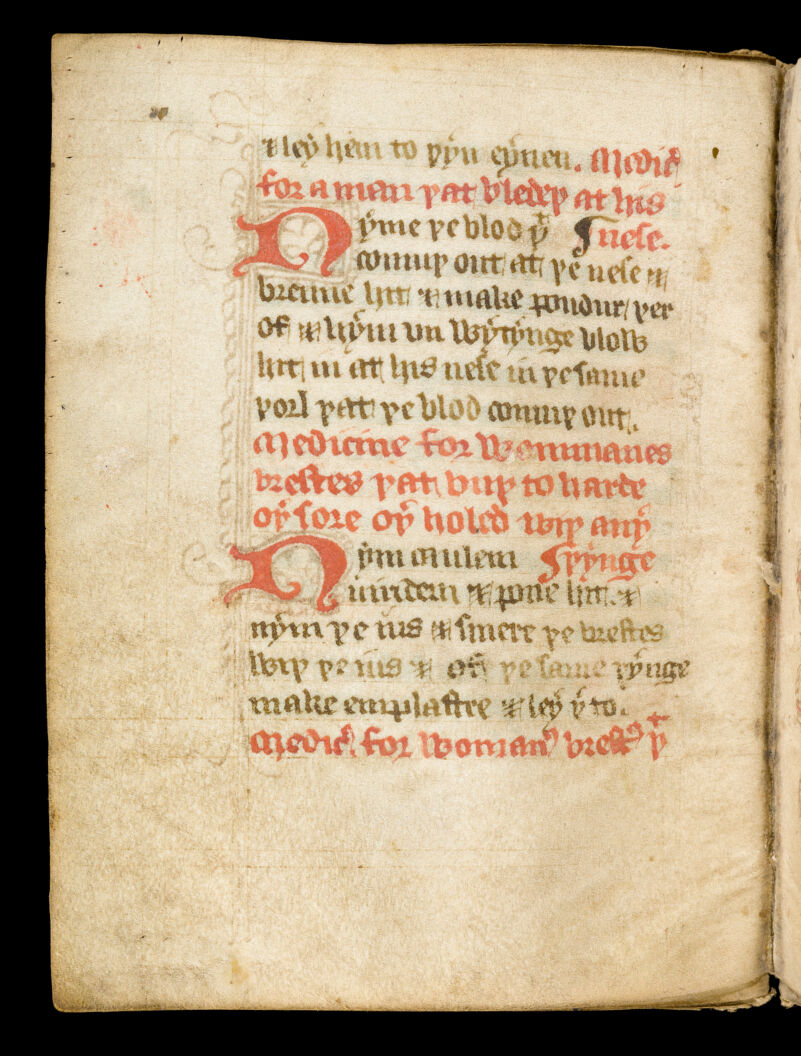 ⁊ ley hem to þyn eynen. Medic̃
for a man þat bledeþ at his
Nyme þe blod þͭ ¶ nese.
commyþ out at þe nese ⁊
brenne hit ⁊ make poudur þer
of ⁊ whym un wrytynge blow
hit in at his nese in þe same
þorl þat þe blod commyþ out.
Medicine for Wommanes
brestes þat buþ to harde
oþͬ sore oþͬ holed wiþ any
Nym malem ¶ þynge
nuirdem ⁊ pone hit. ⁊
nym þe ius ⁊ smere þe brestes
wiþ þe ius ⁊ of þe same þynge
make emplastre ⁊ ley þͭ to.
Medic̃ for woman̉ brest̉ þͭ